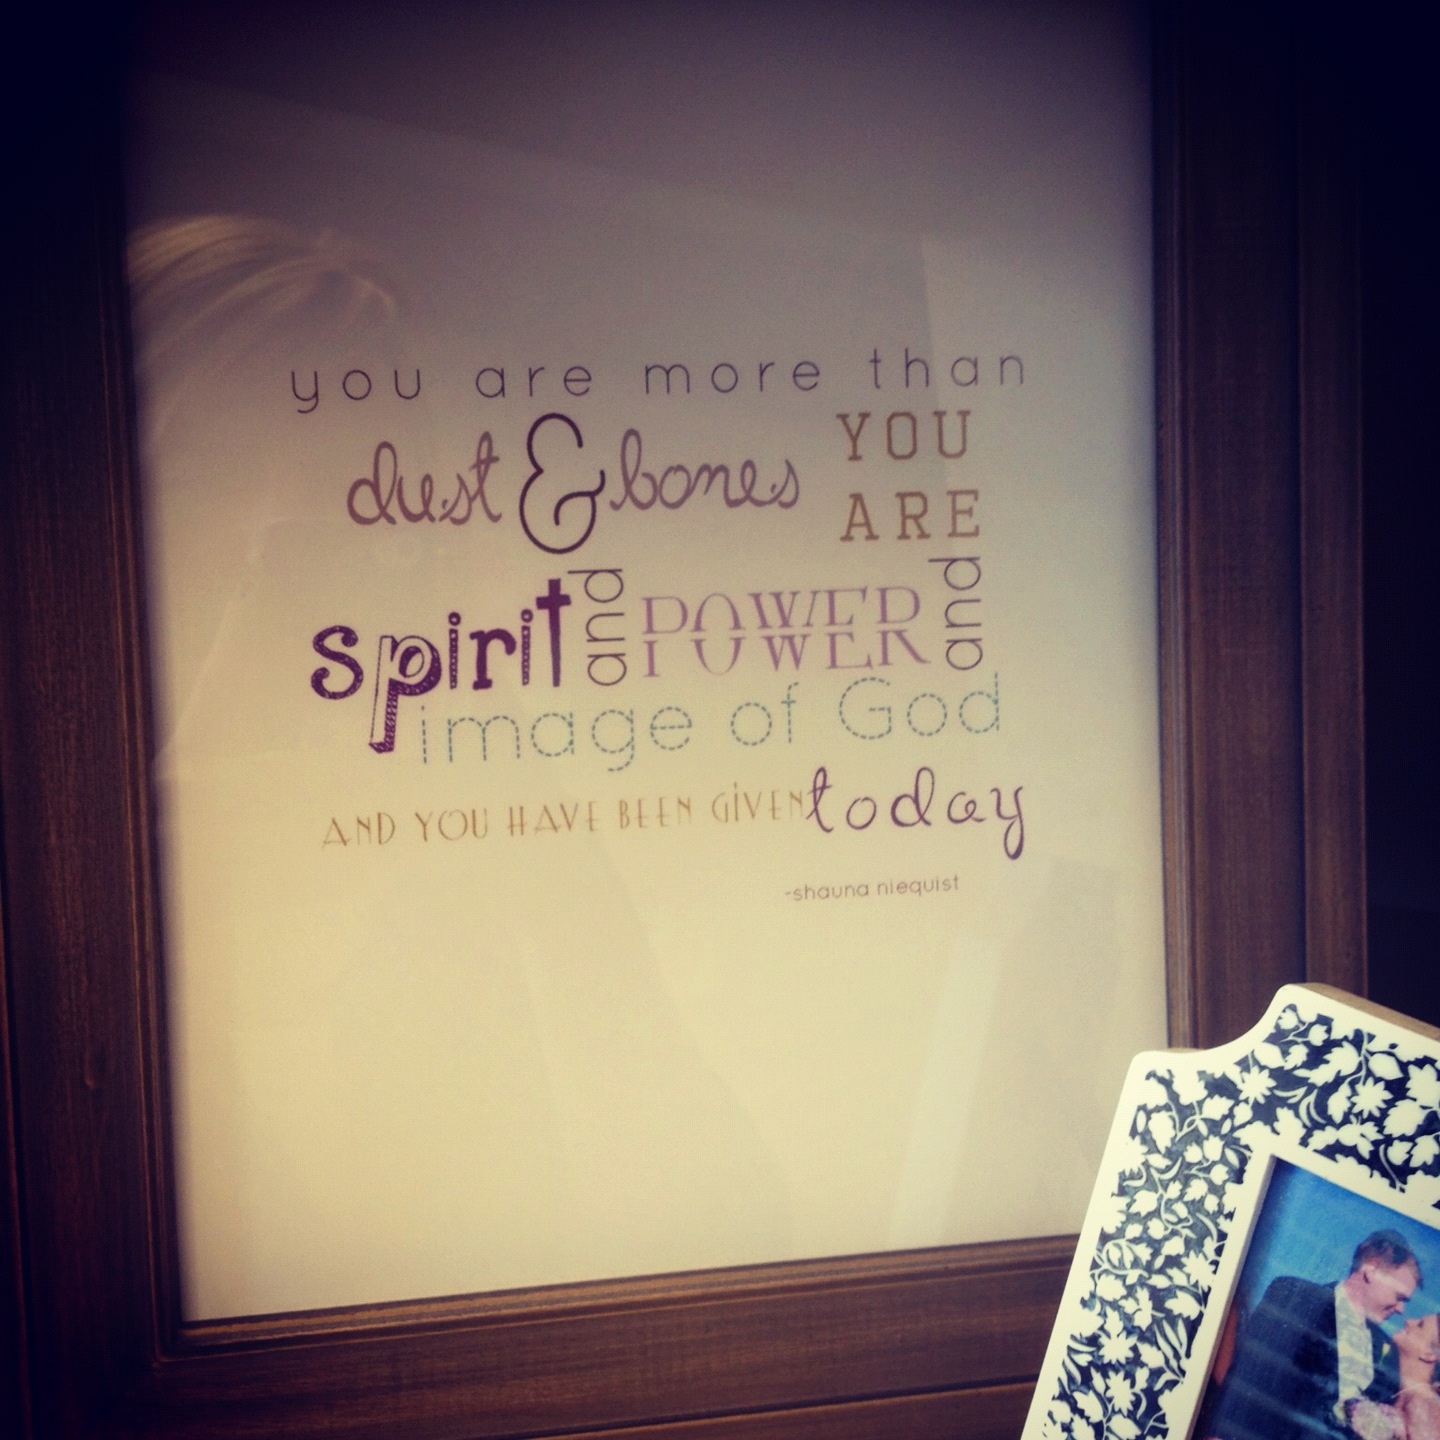 you are more than
dust & bones YOU
ARE
spirit and POWER and
image of God
AND YOU HAVE BEEN GIVEN today
-shauna niequist